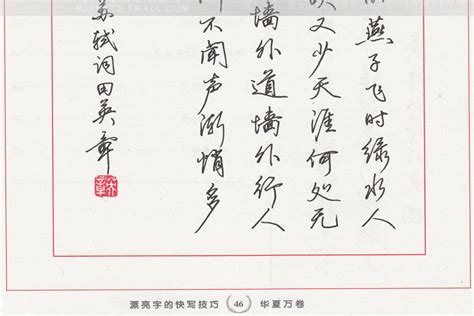 燕子飞时绿水人
又少天涯何处无
墙外道墙外行人
不闻声渐悄多
苏轼词田英章
漂亮字的快写技巧 46 华夏万卷